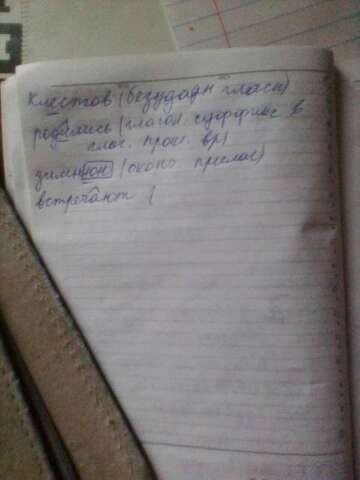 Клестов (безударн гласн)
родились (глагол. суффикс в
глаг. прош. вр)
зимнюю (оконч прилаг)
встречают (